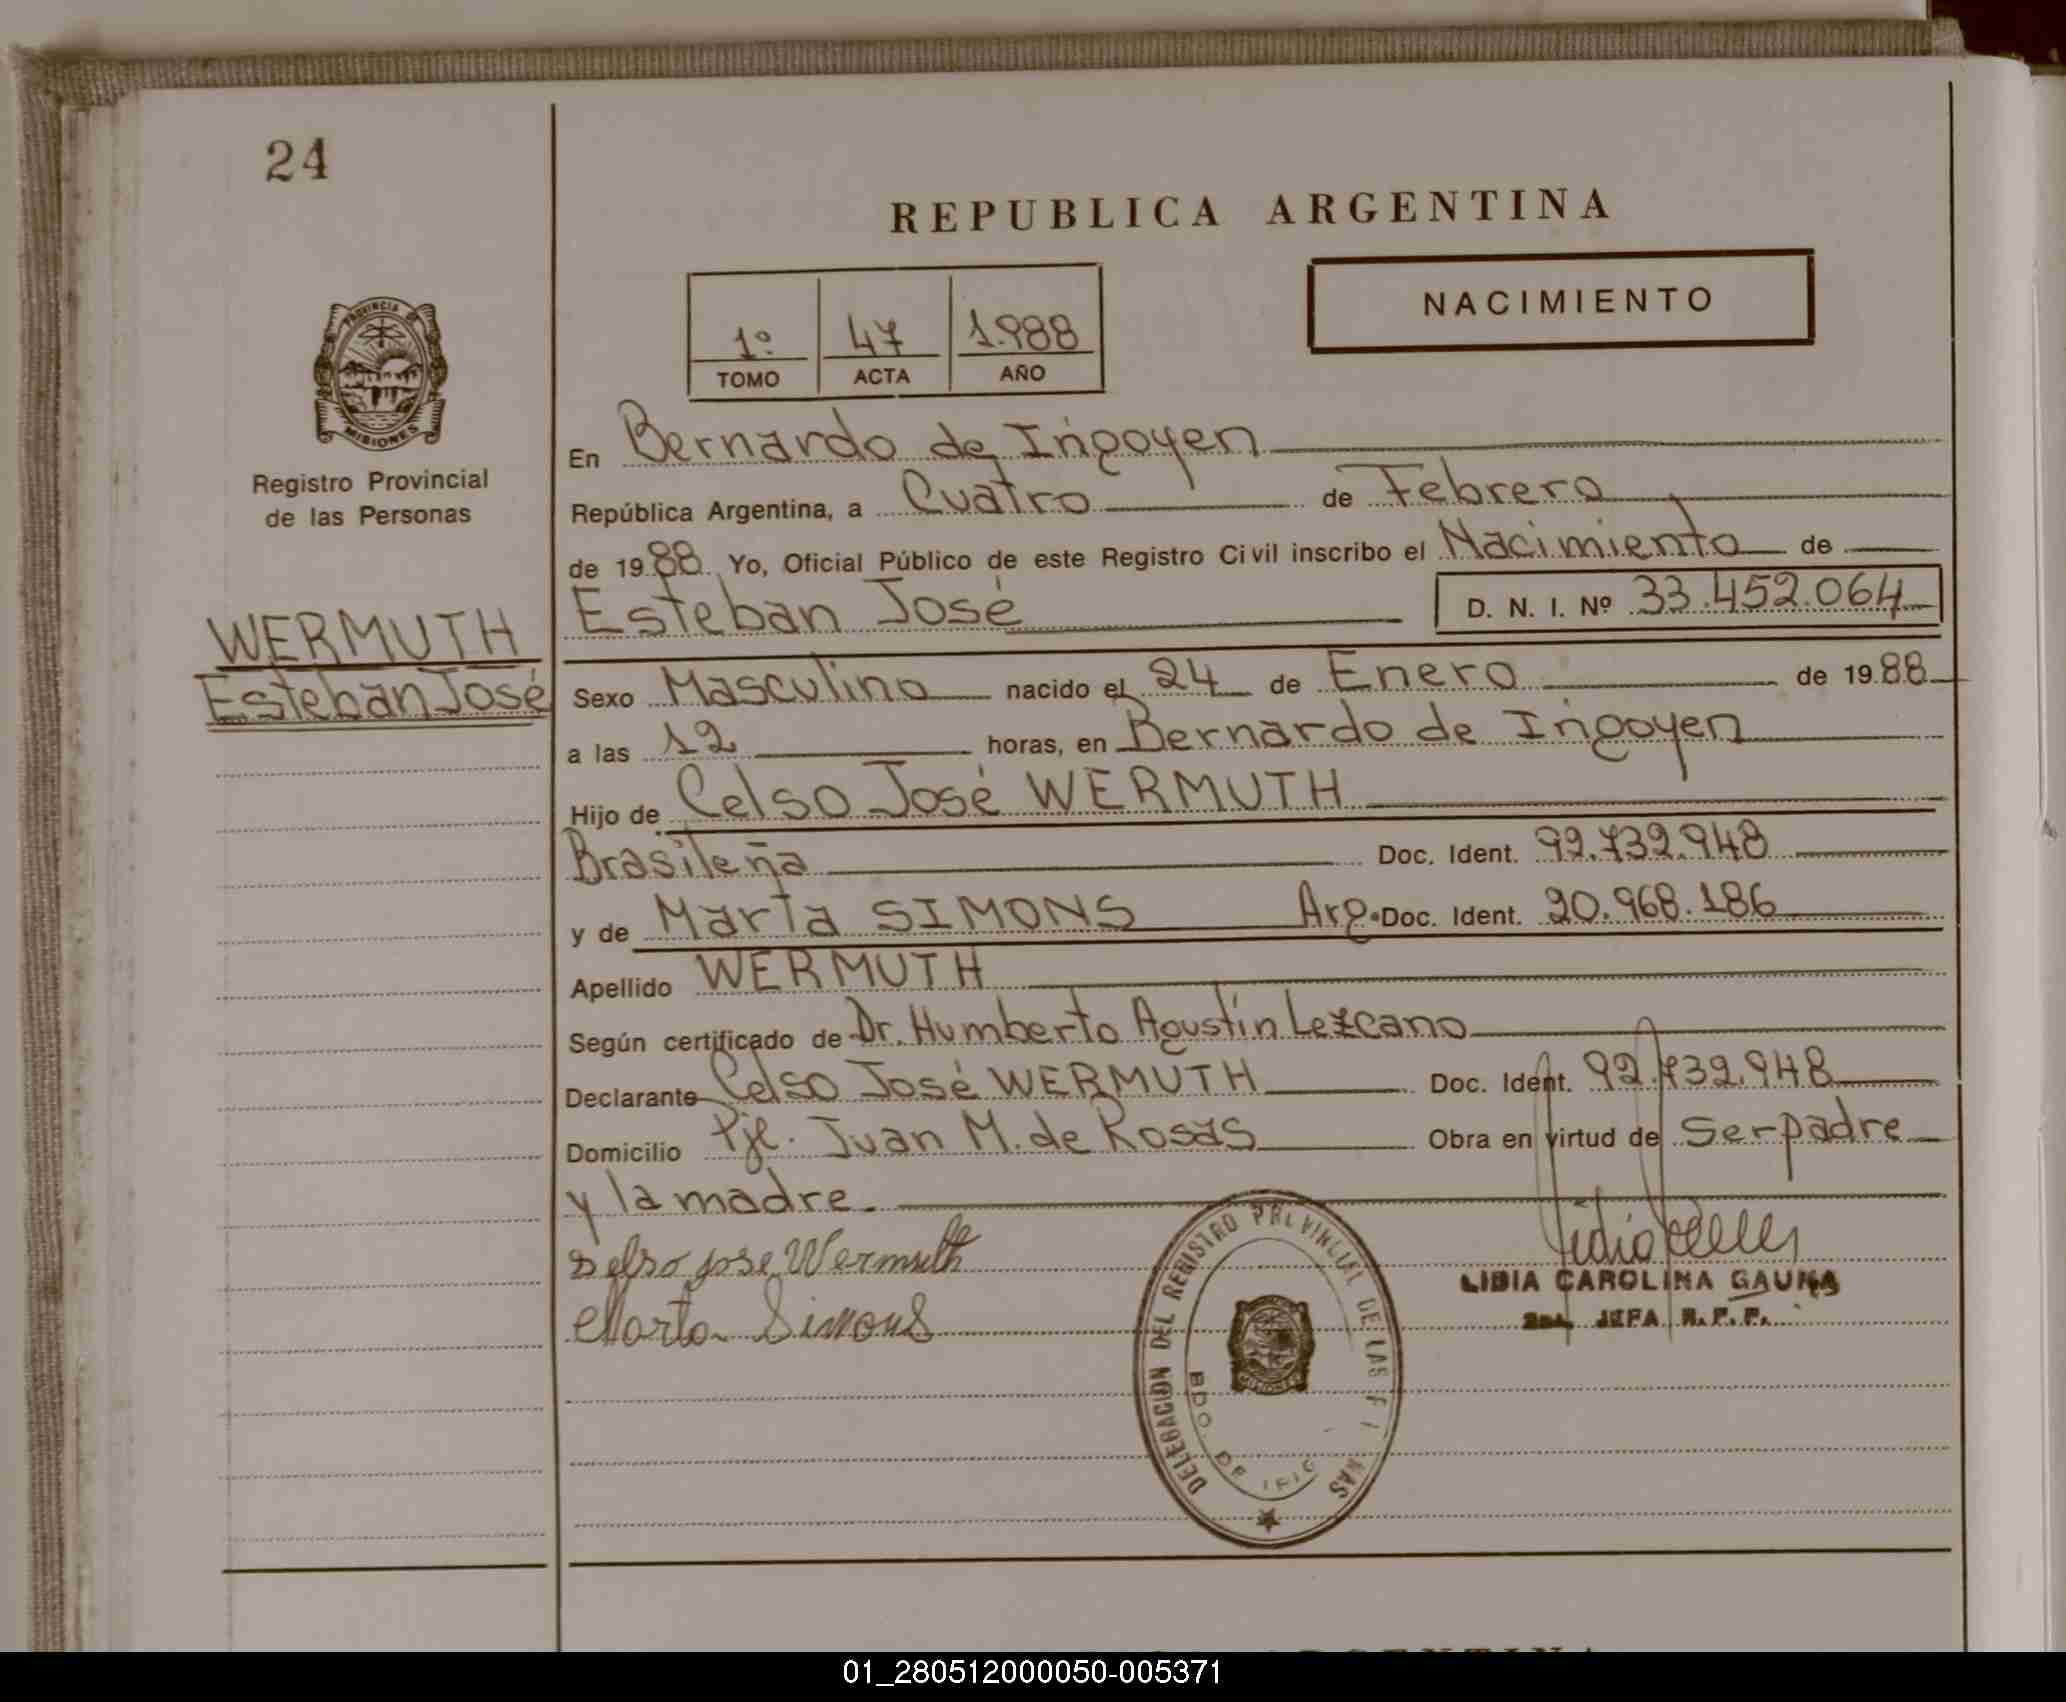 24
REPUBLICA ARGENTINA
NACIMIENTO
1º 47 1.988
TOMO ACTA AÑO
PROVINCIA DE
MISIONES
Registro Provincial
de las Personas
En Bernardo de Irigoyen
República Argentina, a Cuatro de Febrero
de 1988 Yo, Oficial Público de este Registro Civil inscribo el Nacimiento de
Esteban José D. N. I. Nº 33.452.064
WERMUTH
Esteban José
Sexo Masculino nacido el 24 de Enero de 1988
a las 12 horas, en Bernardo de Irigoyen
Hijo de Celso José WERMUTH
Brasileña Doc. Ident. 92.732.948
y de Marta SIMONS Arg. Doc. Ident. 20.968.186
Apellido WERMUTH
Según certificado de Dr. Humberto Agustín Lezcano
Declarante Celso José WERMUTH Doc. Ident. 92.732.948
Domicilio Pje. Juan M. de Rosas Obra en virtud de Ser padre
y la madre.
Selso jose Wermuth
Marta Simons
LIDIA CAROLINA GAUNA
JEFA R.P.P.
DELEGACION DEL REGISTRO PROVINCIAL DE LAS
BDO. DE IRIG
01_280512000050-005371